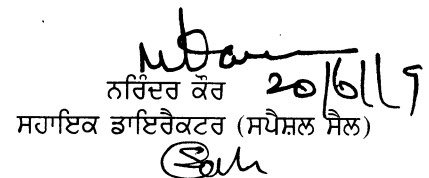 ਨਰਿੰਦਰ ਕੌਰ 20/6/19
ਸਹਾਇਕ ਡਾਇਰੈਕਟਰ (ਸਪੈਸ਼ਲ ਸੈਲ)